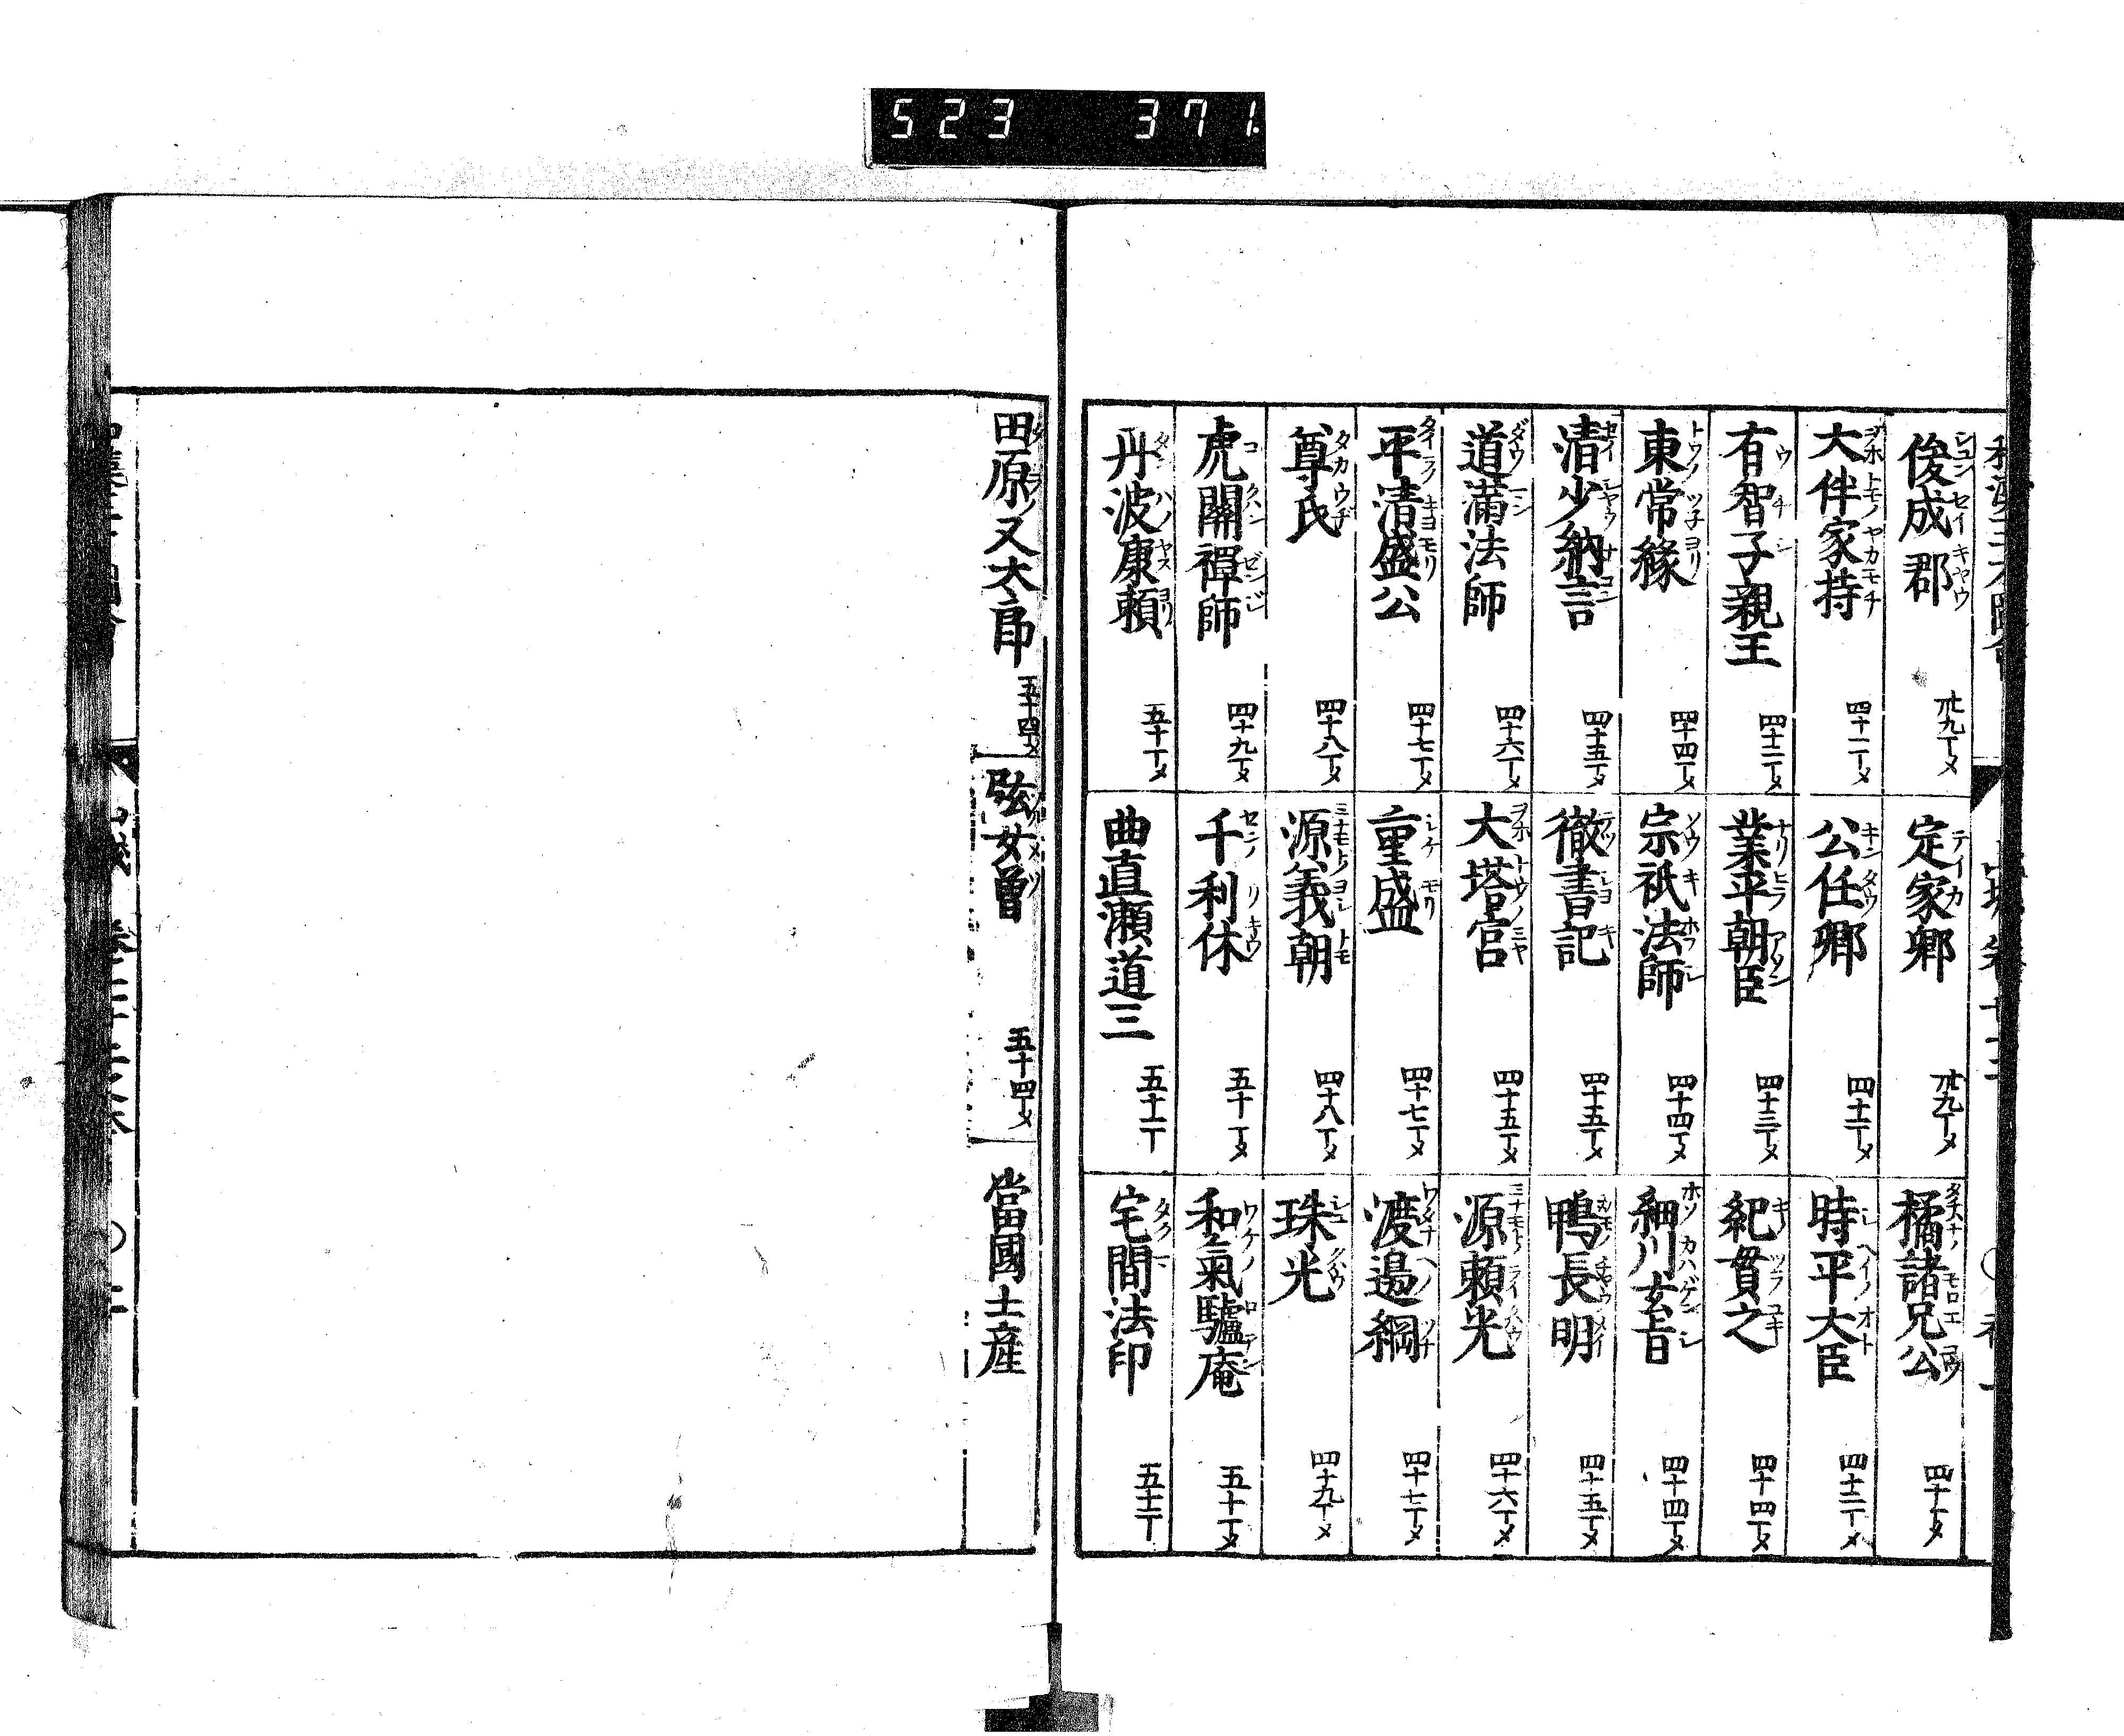 523 371.
俊成郡 丗九丁メ
定家卿 丗九丁メ
橘諸兄公 四十丁メ
大伴家持 四十一丁メ
公任卿 四十二丁メ
時平大臣 四十二丁メ
有智子親王 四十二丁メ
業平朝臣 四十三丁メ
紀貫之 四十四丁メ
東常縁 四十四丁メ
宗祇法師 四十四丁メ
細川玄旨 四十四丁メ
清少納言 四十五丁メ
徹書記 四十五丁メ
鴨長明 四十五丁メ
道満法師 四十六丁メ
大塔宮 四十五丁メ
源頼光 四十六丁メ
平清盛公 四十七丁メ
重盛 四十七丁メ
渡邉綱 四十七丁メ
尊氏 四十八丁メ
源義朝 四十八丁メ
珠光 四十九丁メ
虎關禪師 四十九丁メ
千利休 五十丁メ
和氣驢庵 五十一丁メ
丹波康頼 五十丁メ
曲直瀬道三 五十一丁
宅間法印 五十二丁
田原又太郎 五十四丁メ
弦女曽 五十四丁メ
當國土産